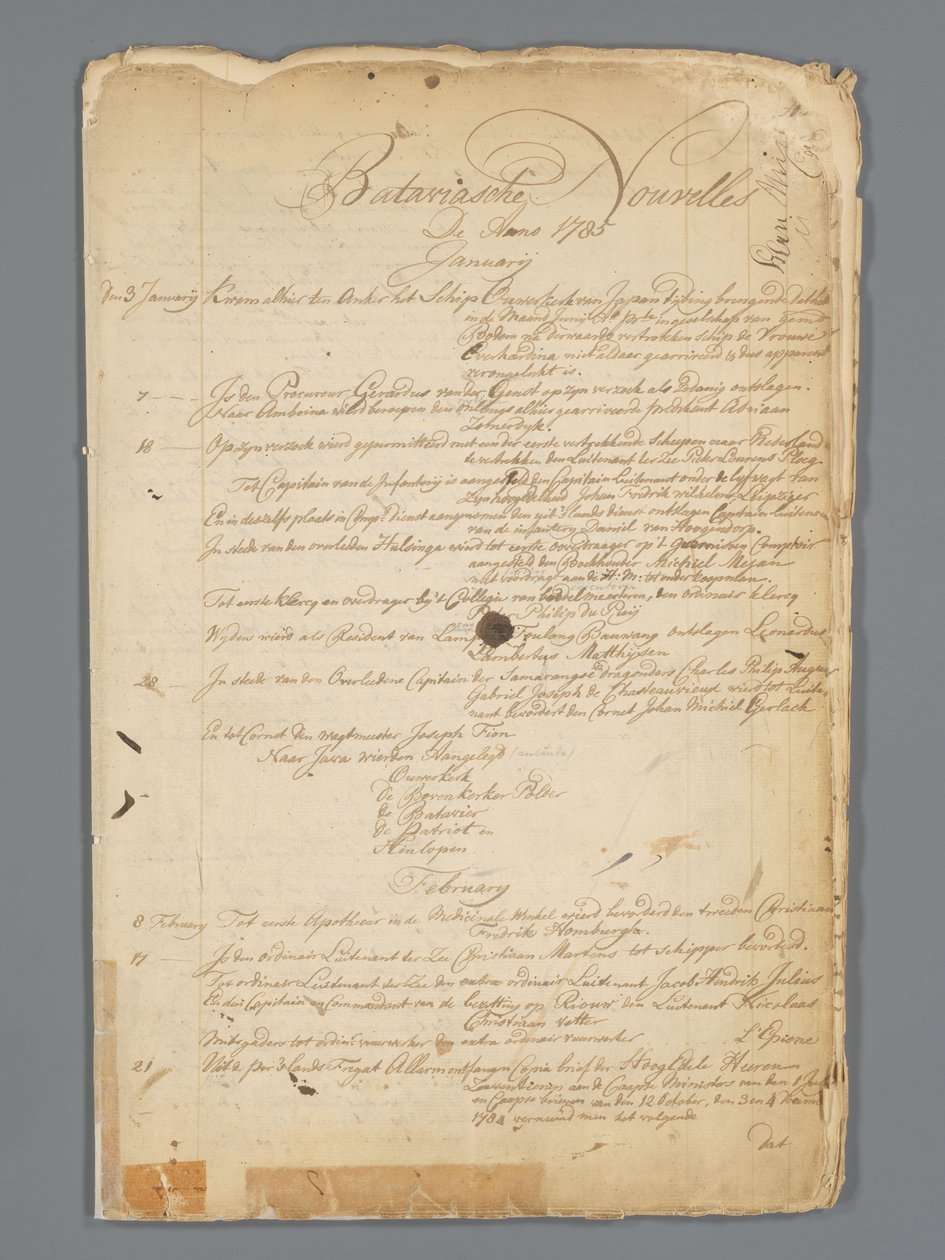 Bataviasche Nouvelles
De Anno 1785
Januarij
Den 3 Januarij Kwam alhier ten Anker het Schip Ouwerkerk van Japan tijding brengende dat het
in de Maand Junij in geselschap van
Bodem na derwaards vertrokken schip de Vrouwe
Everhardina niet aldaer gearriveerd & dus apparent
verongelukt is.
7 Is den Procureur Gerardus van der Genst op zyn verzoek als zodanig ontslagen.
Naar Amboina wierd beroepen den onlangs alhier gearriveerde predikant Adriaan
Zomerdyk.
18 Op zyn verzoek wierd gepermitteerd met een der eerste vertrekkende scheepen naar Nederland
te vertrekken den Luitenant ter Zee Pieter Lourens Ploeg
Tot Capitain van de Infanterij is aangesteld den Capitain Luitenant onder de lyfwagt van
Zyn hoog Edelheid Johan Fredrik wilhelm Leipziger
En in deszelfs plaats in Comps: dienst aangenomen den uit 's lands dienst ontslagen Capitain Luitenant
van de infantery Daniel van Hoogendorp.
In stede van den overleden Hulsinga wierd tot eerste overdraager op 't Guarnisoen Comptoir
aangesteld den Boekhouder Michiel Mejan
met voordragt aan de H: M: tot onderkoopman.
Tot eerste klercq en overdrager bij 't Collegie van boedelmeesteren, den ordinair klercq
Philip du Puij
Wyders wierd als Resident van Toulang Bauwang ontslagen Leonardus
Lambertus Matthysen
28 In stede van den Overledene Capitain der Samarangse dragonders Charles Philip August
Gabriel Joseph de Chasteauvieux wierd tot Luite-
nant bevordert den Cornet Johan Michiel Gerlach
En tot Cornet den wagtmeester Joseph Fion
Naar Java wierden Aangelegd
Ouwerkerk
De Bovenkerker Polder
de Batavier
de Patriot en
Hinlopen
February
8 February Tot eerste Apothecar in de Medicinale Winkel wierd bevorderd den tweeden Christiaan
Fredrik Homburg.
17 Is den ordinair Luitenant ter Zee Christiaan Martens tot schipper bevorderd.
Tot ordinair Luitenant ter Zee den extra ordinair Luitenant Jacob Hindrik Julius
En den Capitain en Commandant van de bezetting op Riouw den Luitenant Nicolaas
Christiaan Vetter
Mitsgaders tot ordinr: vuurwerker den extra ordinair vuurwerker L'Epine
21 Uit de per 's lands Fregat Allarm ontfangen Copia brief der Hoog Edele Heeren
Zeventienen aan de Caapse Ministers van den
en Caapse brieven van den 12 October, den 3 en 4
1784 verneemd men het volgende
dat